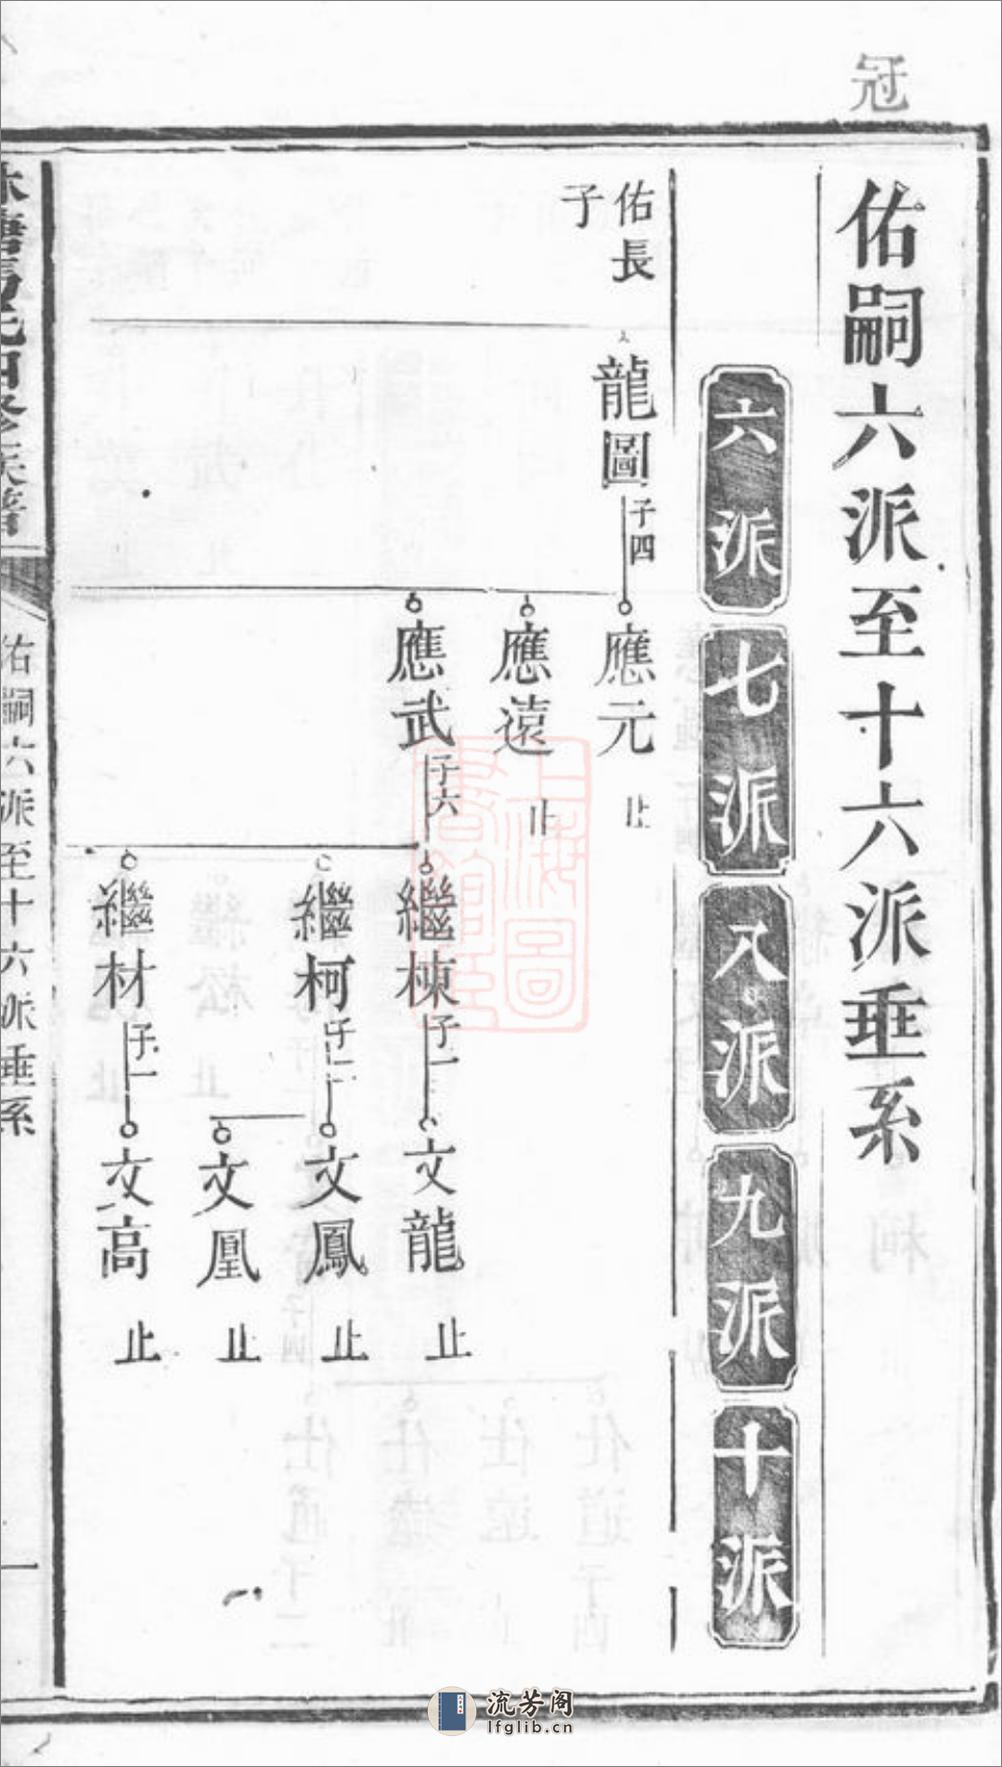 冠
佑嗣六派至十六派垂系
六派
七派
八派
九派
十派
佑長
子
龍圖 子四
應元 止
應遠 止
應武 子六
繼棟 子一
文龍 止
繼柯 子二
文鳳 止
文凰 止
繼材 子一
文高 止
佑嗣六派至十六派垂系
一
上海圖
流芳阁
lfglib.cn